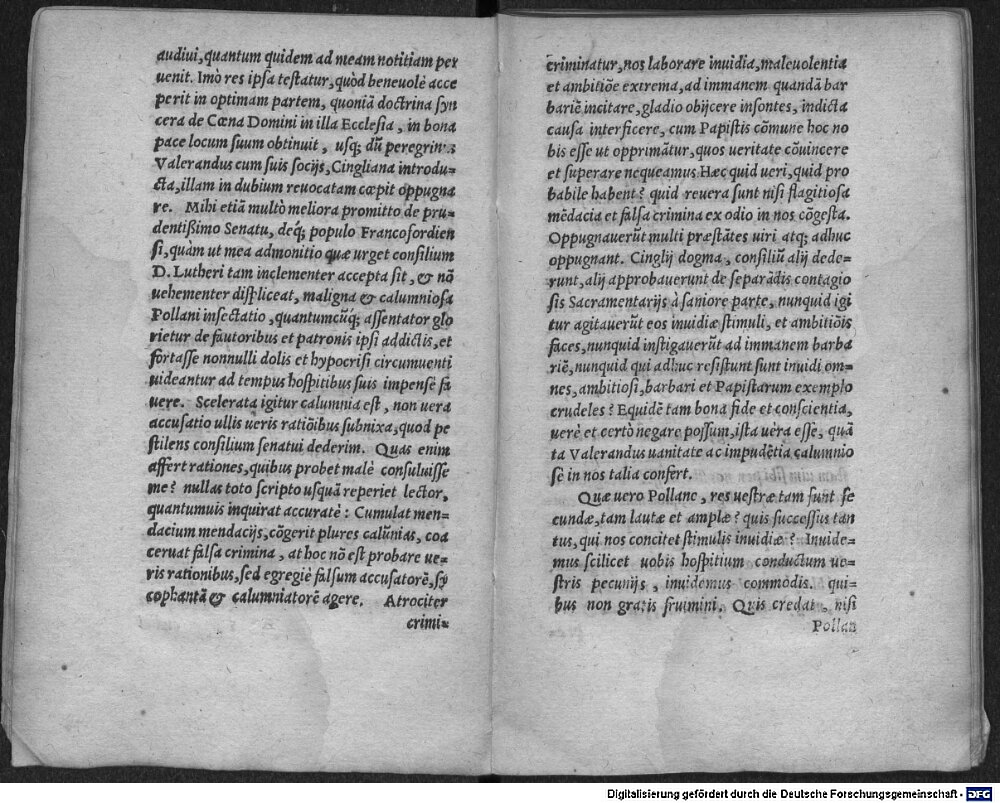 audiui, quantum quidem ad meam notitiam per
uenit. Imò res ipsa testatur, quòd beneuolè acce
perit in optimam partem, quoniā doctrina syn
cera de Cœna Domini in illa Ecclesia, in bona
pace locum suum obtinuit, usq; dū peregrinus
Valerandus cum suis socijs, Cingliana introdu-
cta, illam in dubium reuocatam cœpit oppugna
re. Mihi etiā multò meliora promitto de pru-
dentißimo Senatu, deq; populo Francofordien
si, quàm ut mea admonitio quæ urget consilium
D. Lutheri tam inclementer accepta sit, & nō
uehementer displiceat, maligna & calumniosa
Pollani insectatio, quantumcūq; assentator glo
rietur de fautoribus et patronis ipsi addictis, et
fortasse nonnulli dolis et hypocrisi circumuenti
uideantur ad tempus hospitibus suis impensè fa
uere. Scelerata igitur calumnia est, non uera
accusatio ullis ueris ratiōibus subnixa, quod pe
stilens consilium senatui dederim. Quas enim
affert rationes, quibus probet malè consuluisse
me? nullas toto scripto usquā reperiet lector,
quantumuis inquirat accuratè: Cumulat men-
dacium mendacijs, cōgerit plures calūnias, coa
ceruat falsa crimina, at hoc nō est probare ue-
ris rationibus, sed egregiè falsum accusatorē, sy
cophantā & calumniatorē agere. Atrociter
crimi-
criminatur, nos laborare inuidia, maleuolentia
et ambitiōe extrema, ad immanem quandā bar
bariē incitare, gladio obijcere insontes, indicta
causa interficere, cum Papistis cōmune hoc no
bis esse ut opprimātur, quos ueritate cōuincere
et superare nequeamus Hæc quid ueri, quid pro
babile habent? quid reuera sunt nisi flagitiosa
mēdacia et falsa crimina ex odio in nos cōgesta.
Oppugnauerūt multi præstātes uiri atq; adhuc
oppugnant. Cinglij dogma, consiliū alij dede-
runt, alij approbauerunt de separādis contagio
sis Sacramentarijs à saniore parte, nunquid igi
tur agitauerūt eos inuidiæ stimuli, et ambitiōis
faces, nunquid instigauerūt ad immanem barba
riē, nunquid qui adhuc resistunt sunt inuidi om-
nes, ambitiosi, barbari et Papistarum exemplo
crudeles? Equidē tam bona fide et conscientia,
uerè et certò negare possum, ista uera esse, quā
ta Valerandus uanitate ac impudētia calumnio
sè in nos talia confert.
Quæ uero Pollane, res uestræ tam sunt fe
cundæ, tam lautæ et amplæ? quis successus tan
tus, qui nos concitet stimulis inuidiæ? Inuide-
mus scilicet uobis hospitium conductum ue-
stris pecunijs, inuidemus commodis. qui-
bus non gratis fruimini. Quis credat, nisi
Pollan
Digitalisierung gefördert durch die Deutsche Forschungsgemeinschaft - DFG